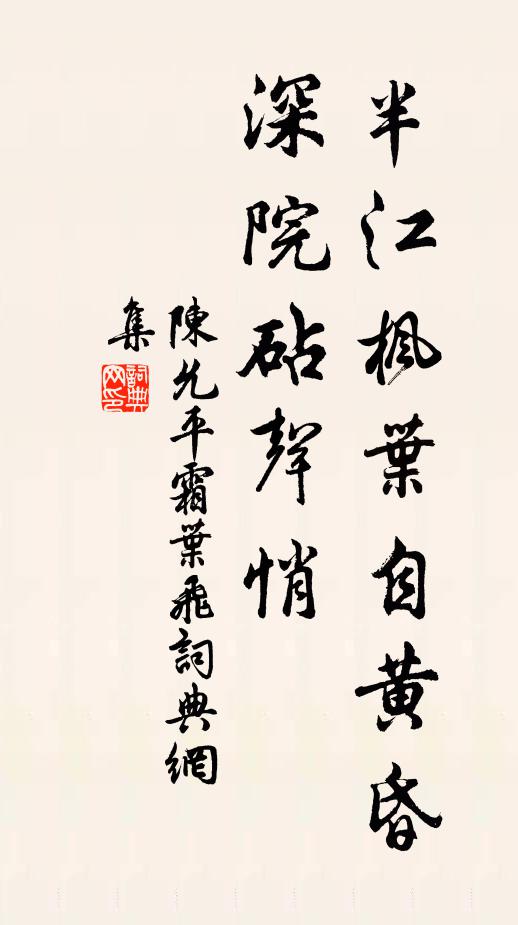 半江楓葉自黃昏
深院砧聲悄
陳允平霜葉飛詞典網
集
詞典網印